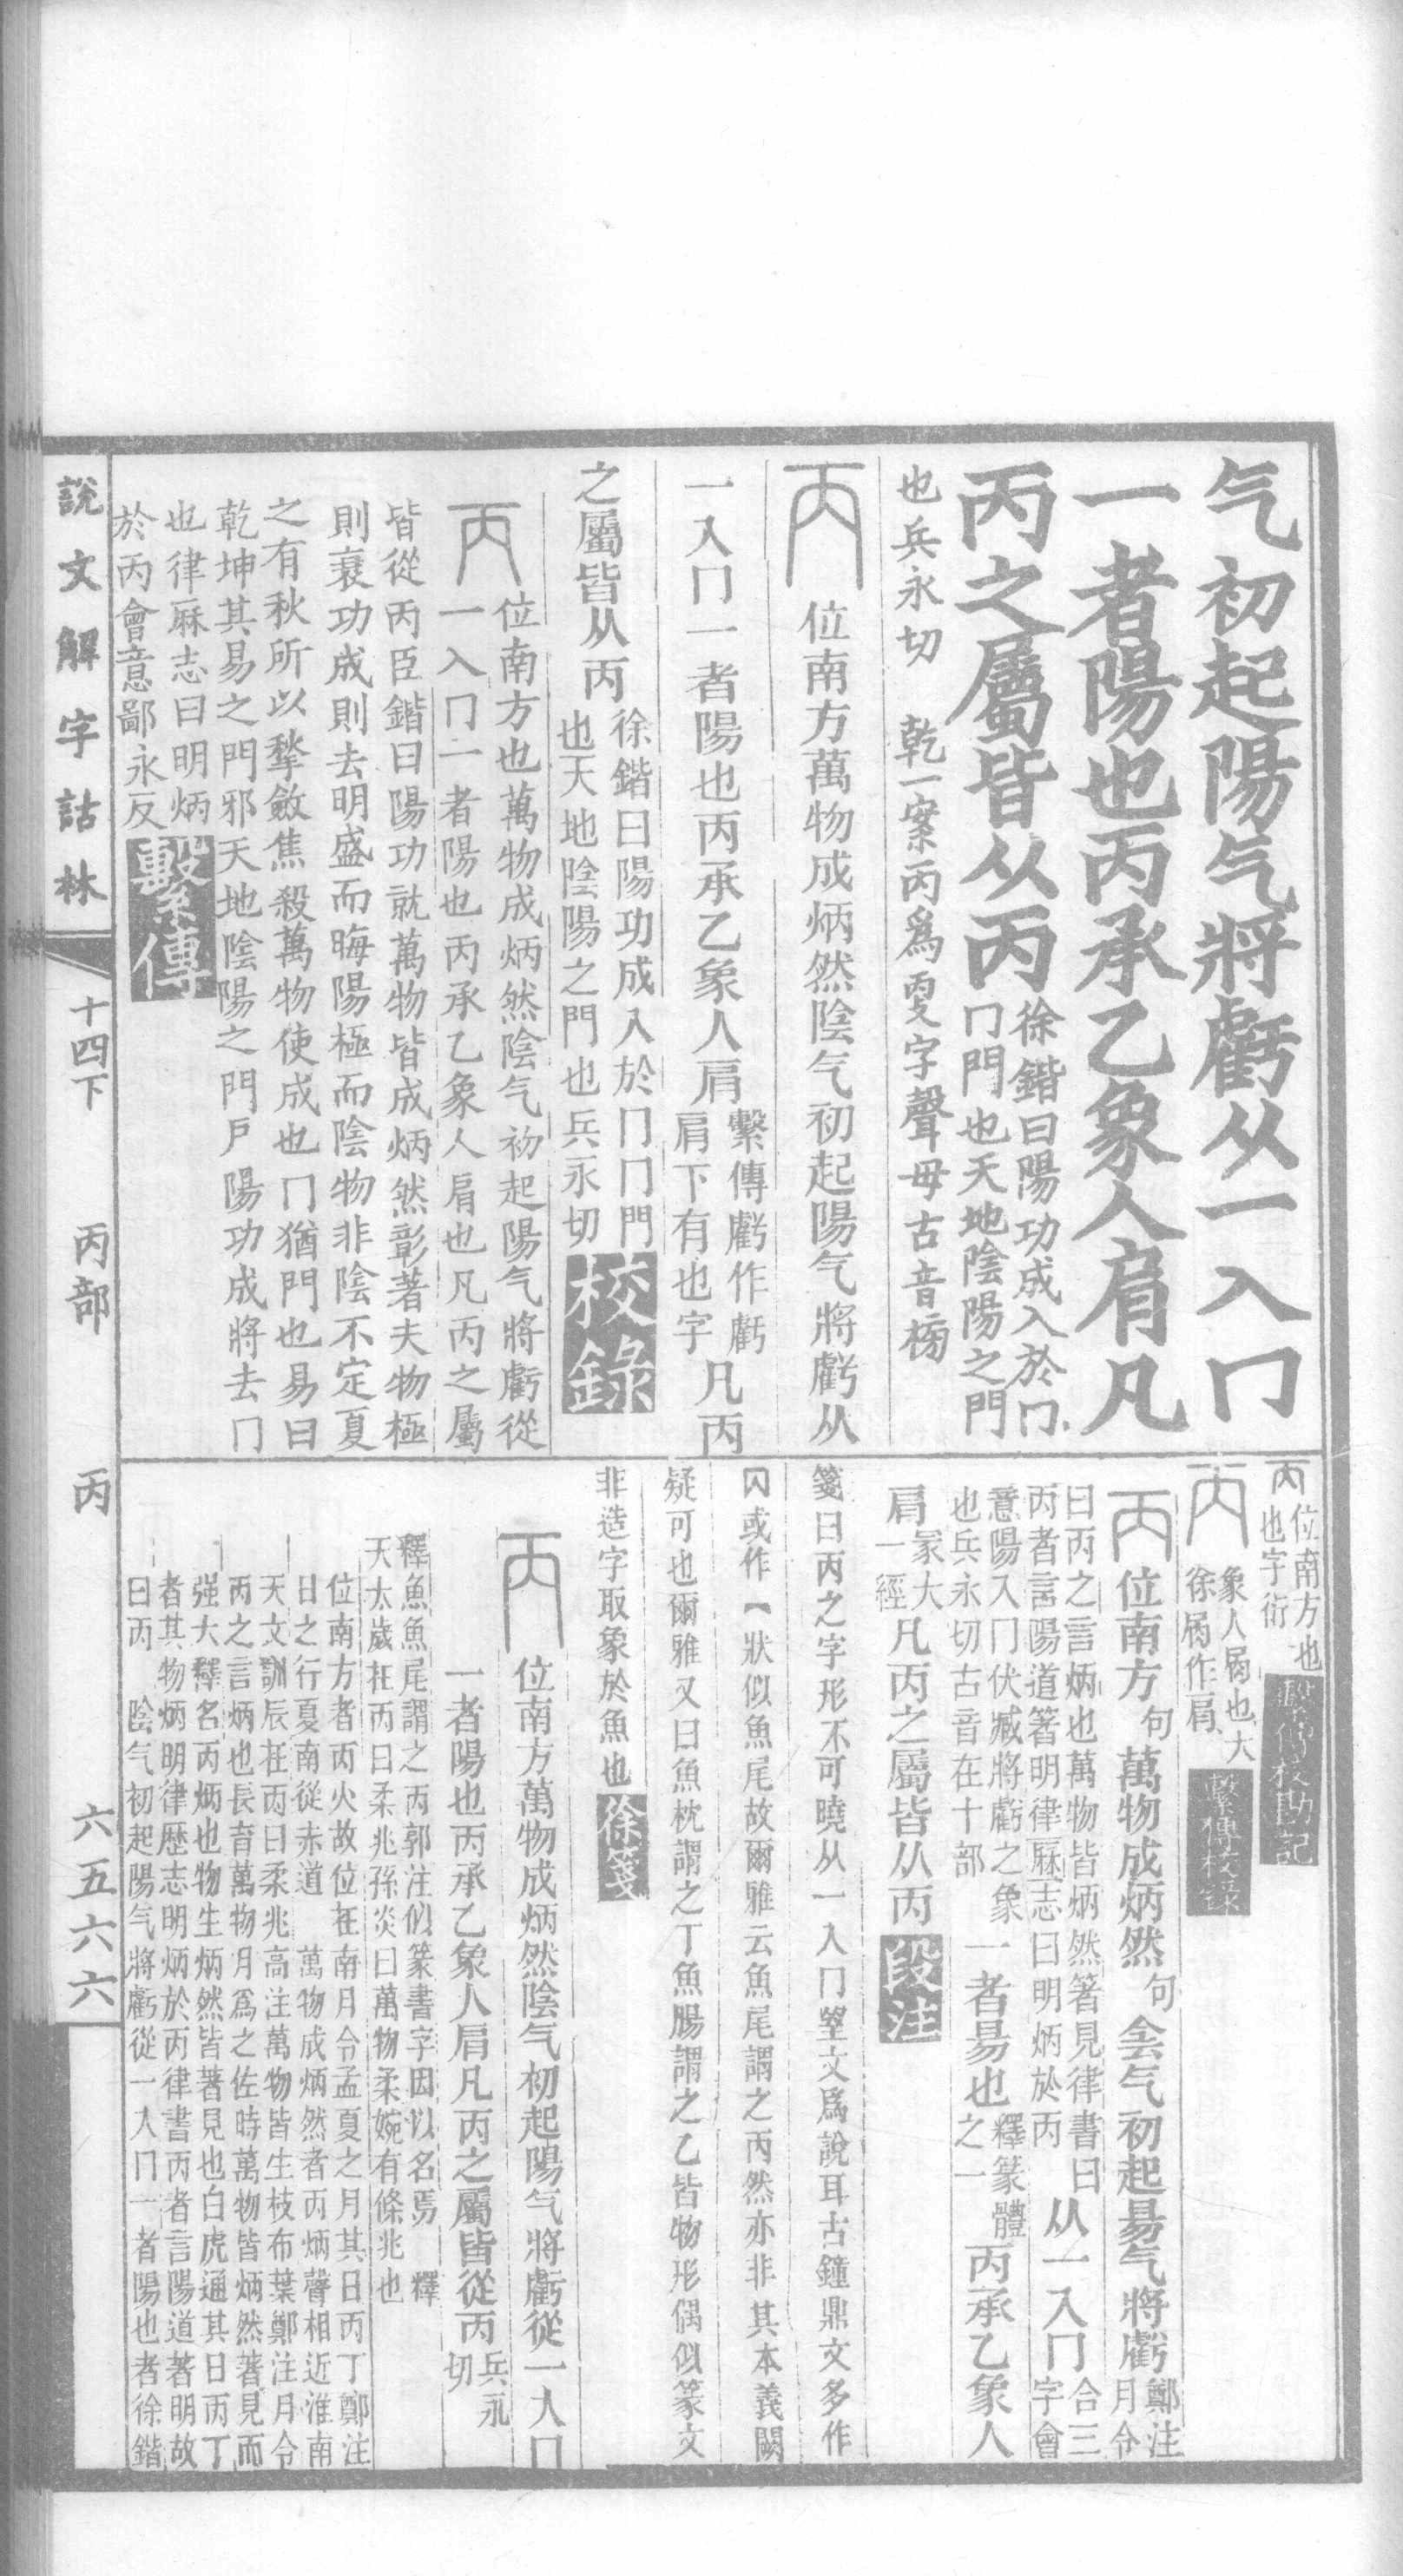 气初起陽气將虧从一入冂
一者陽也丙承乙象人肩凡
丙之屬皆从丙
徐鍇曰陽功成入於冂
冂門也天地陰陽之門
也兵永切　乾一案丙爲㪅字聲母古音榜
丙　位南方萬物成炳然陰气初起陽气將虧从
一入冂一者陽也丙承乙象人肩
繫傳虧作虧
肩下有也字
凡丙
之屬皆从丙
徐鍇曰陽功成入於冂冂門
也天地陰陽之門也兵永切
校錄
丙　位南方也萬物成炳然陰气初起陽气將虧從
一入冂一者陽也丙承乙象人肩也凡丙之屬
皆從丙臣鍇曰陽功就萬物皆成炳然彰著夫物極
則衰功成則去明盛而晦陽極而陰物非陰不定夏
之有秋所以揫斂焦殺萬物使成也冂猶門也易曰
乾坤其易之門邪天地陰陽之門戶陽功成將去冂
也律厤志曰明炳
於丙會意鄙永反
繫傳
丙
位南方也
也字衍
繫傳校勘記
丙
象人肩也大
徐肩作肩
繫傳校錄
丙　位南方句萬物成炳然句侌气初起昜气將虧
鄭注
月令
曰丙之言炳也萬物皆炳然箸見律書曰
丙者言陽道箸明律厤志曰明炳於丙
从一入冂
合三
字會
意陽入冂伏臧將虧之象
也兵永切古音在十部
一者昜也
釋篆體
之一
丙承乙象人
肩
冡大
一經
凡丙之屬皆从丙
段注
箋曰丙之字形不可曉从一入冂望文爲說耳古鐘鼎文多作
或作狀似魚尾故爾雅云魚尾謂之丙然亦非其本義闕
疑可也爾雅又曰魚枕謂之丁魚腸謂之乙皆物形偶似篆文
非造字取象於魚也
徐箋
丙　位南方萬物成炳然陰气初起陽气將虧從一入冂
一者陽也丙承乙象人肩凡丙之屬皆從丙
兵永
切
釋魚魚尾謂之丙郭注似篆書字因以名焉　釋
天太歲在丙曰柔兆孫炎曰萬物柔婉有條兆也
位南方者丙火故位在南月令孟夏之月其日丙丁鄭注
日之行夏南從赤道　萬物成炳然者丙炳聲相近淮南
天文訓辰在丙曰柔兆高注萬物皆生枝布葉鄭注月令
丙之言炳也長育萬物月爲之佐時萬物皆炳然著見而
强大釋名丙炳也物生炳然皆著見也白虎通其日丙丁
者其物炳明律歷志明炳於丙律書丙者言陽道著明故
曰丙　陰气初起陽气將虧從一入冂一者陽也者徐鍇
說文解字詁林
十四下
丙部
丙
六五六六